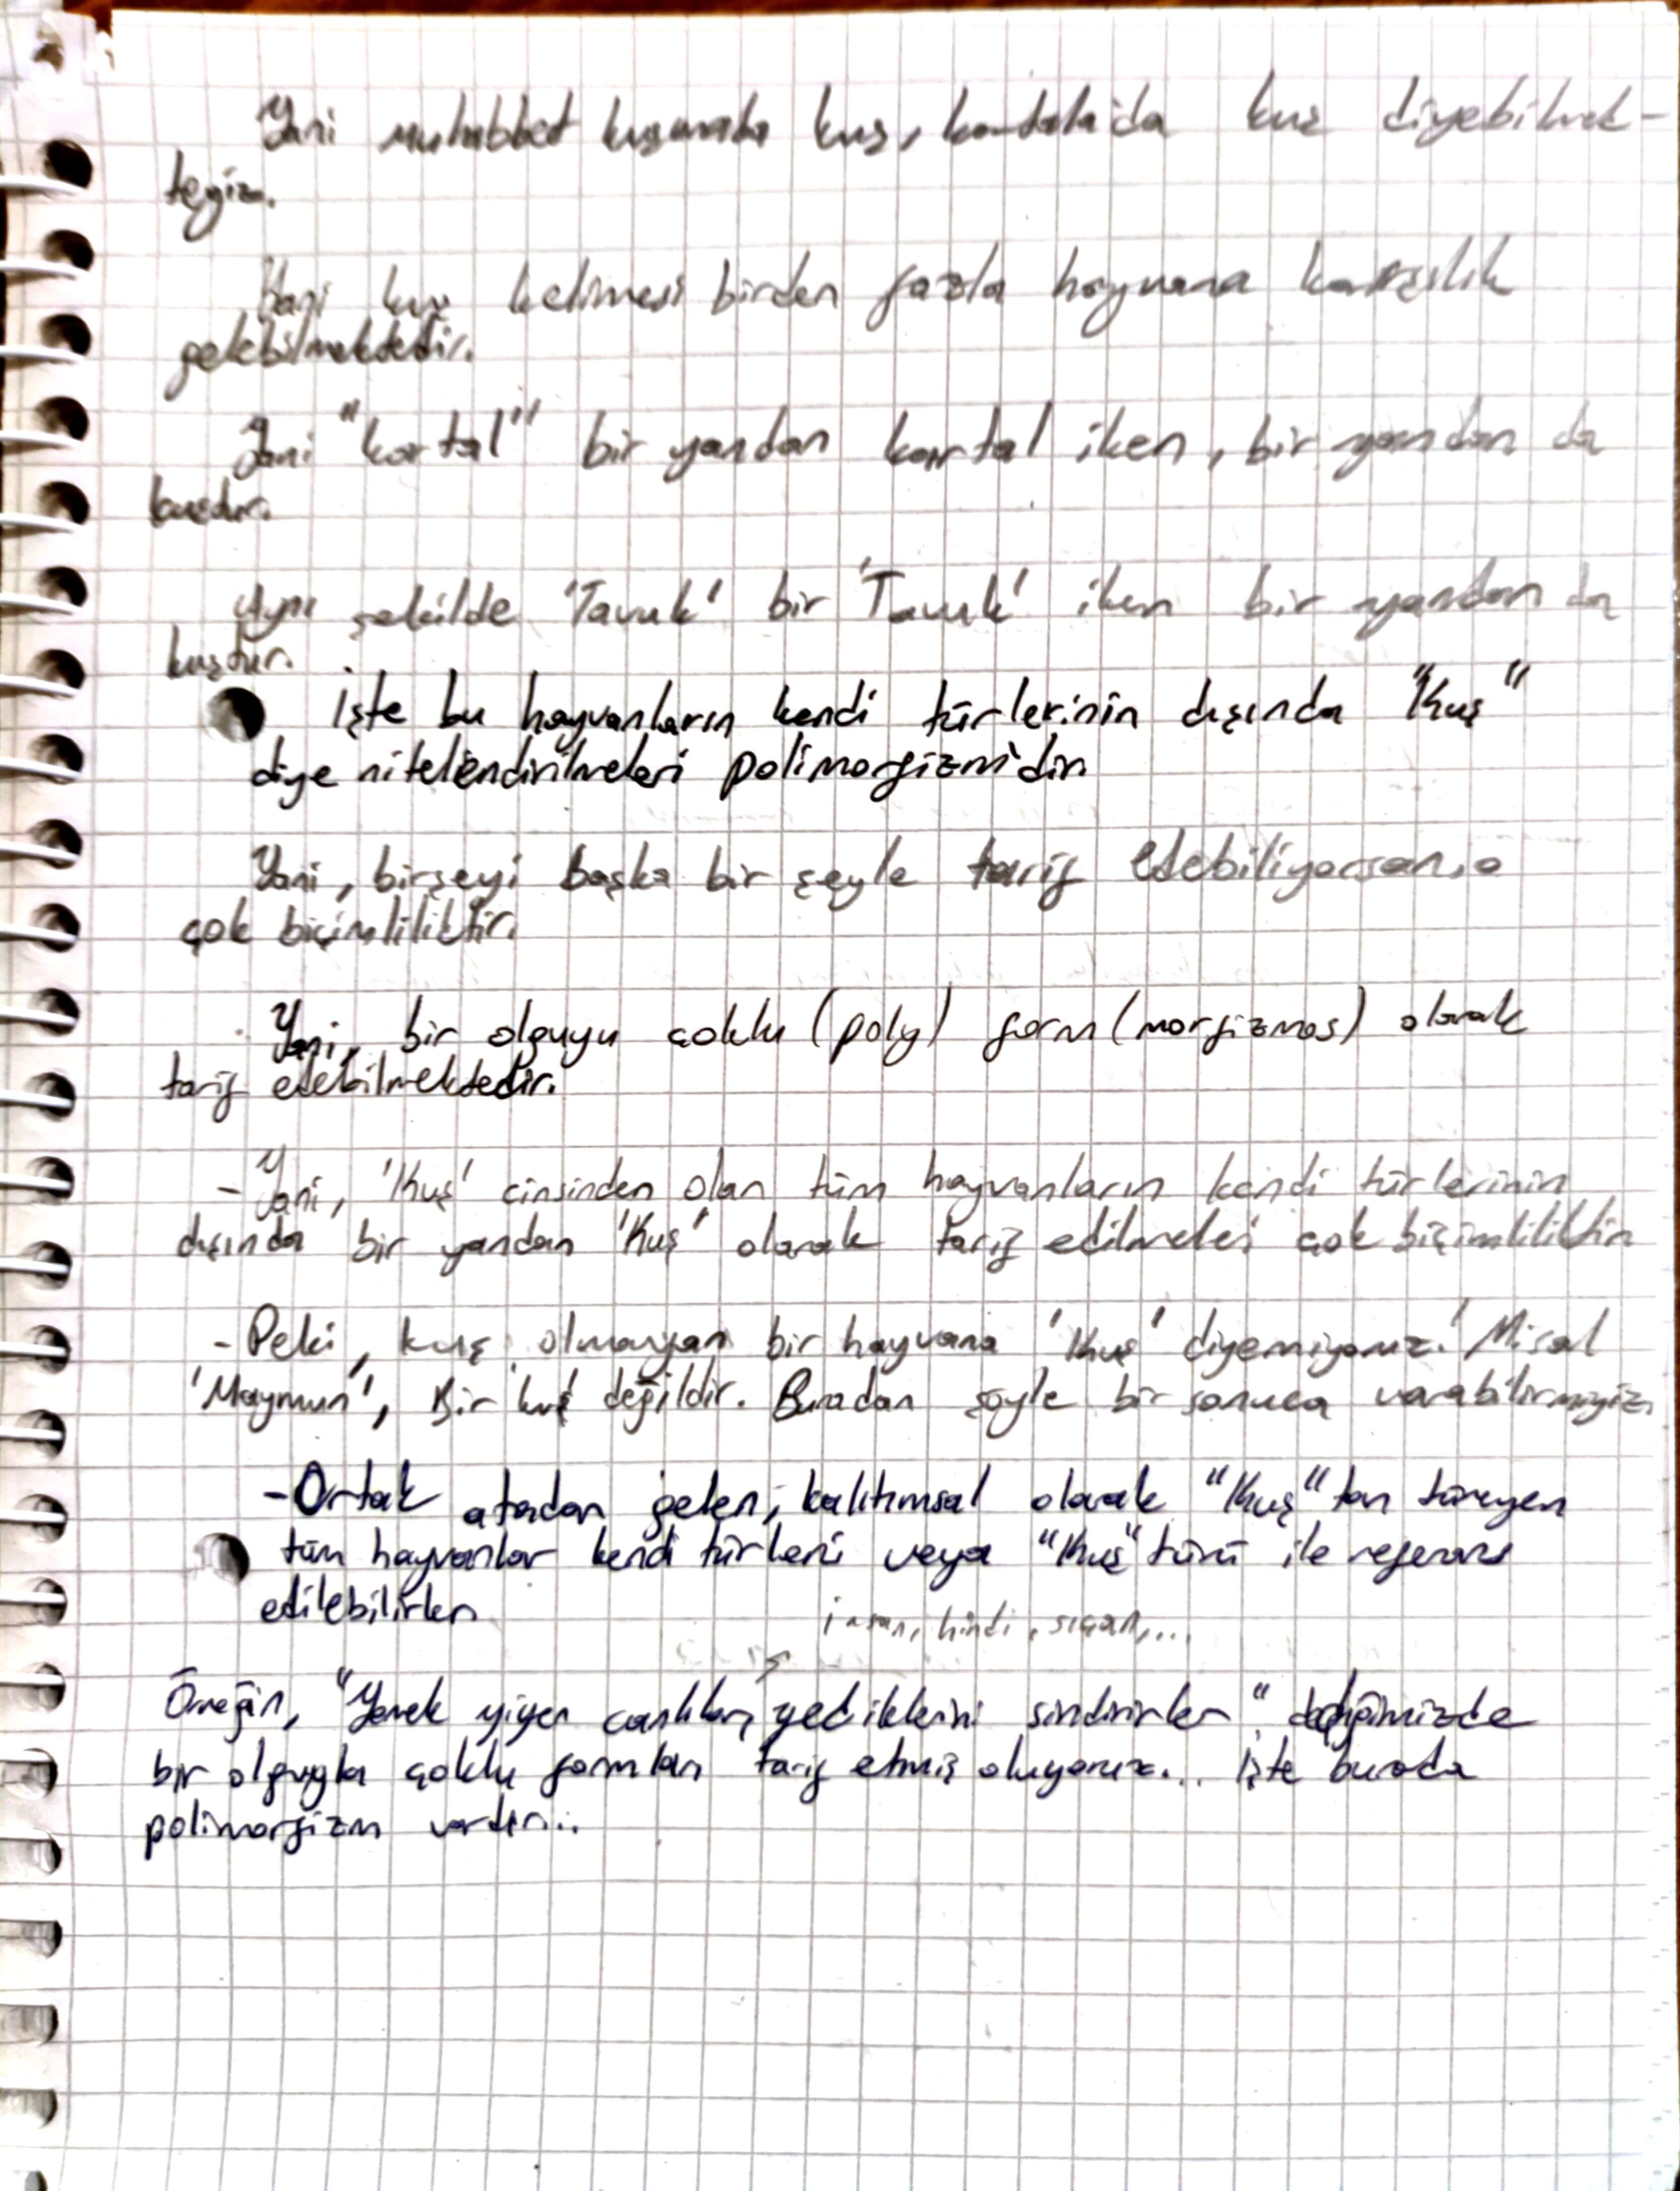 Yani muhabbet kuşunada kuş, kartala'da kuş diyebilmek-
teyiz.
Yani kuş kelimesi birden fazla hayvana karşılık
gelebilmektedir.
Yani "kartal" bir yandan kartal iken, bir yandan da
kuşdur.
Aynı şekilde 'Tavuk' bir 'Tavuk' iken bir yandan da
kuştur.
İşte bu hayvanların kendi türlerinin dışında "Kuş"
diye nitelendirilmeleri polimorfizm'dir.
Yani, birşeyi başka bir şeyle tarif edebiliyorsan, o
çok biçimliliktir.
Yani, bir olguyu çoklu (poly) form (morfizmos) olarak
tarif edebilmektedir.
- Yani, 'Kuş' cinsinden olan tüm hayvanların kendi türlerinin
dışında bir yandan 'Kuş' olarak tarif edilmeleri çok biçimliliktir.
- Peki, kuş olmayan bir hayvana 'Kuş' diyemiyoruz! Misal
'Maymun', Bir kuş değildir. Buradan şöyle bir sonuca varabilirmiyiz.
- Ortak atadan gelen, kalıtımsal olarak "Kuş"tan türeyen
tüm hayvanlar kendi türleri veya "Kuş" türü ile referans
edilebilirler.
insan, hindi, sıçan,...
Örneğin, "Yemek yiyen canlılar, yediklerini sindirirler" dediğimizde
bir olguyla çoklu formları tarif etmiş oluyoruz... İşte burada
polimorfizm vardır...